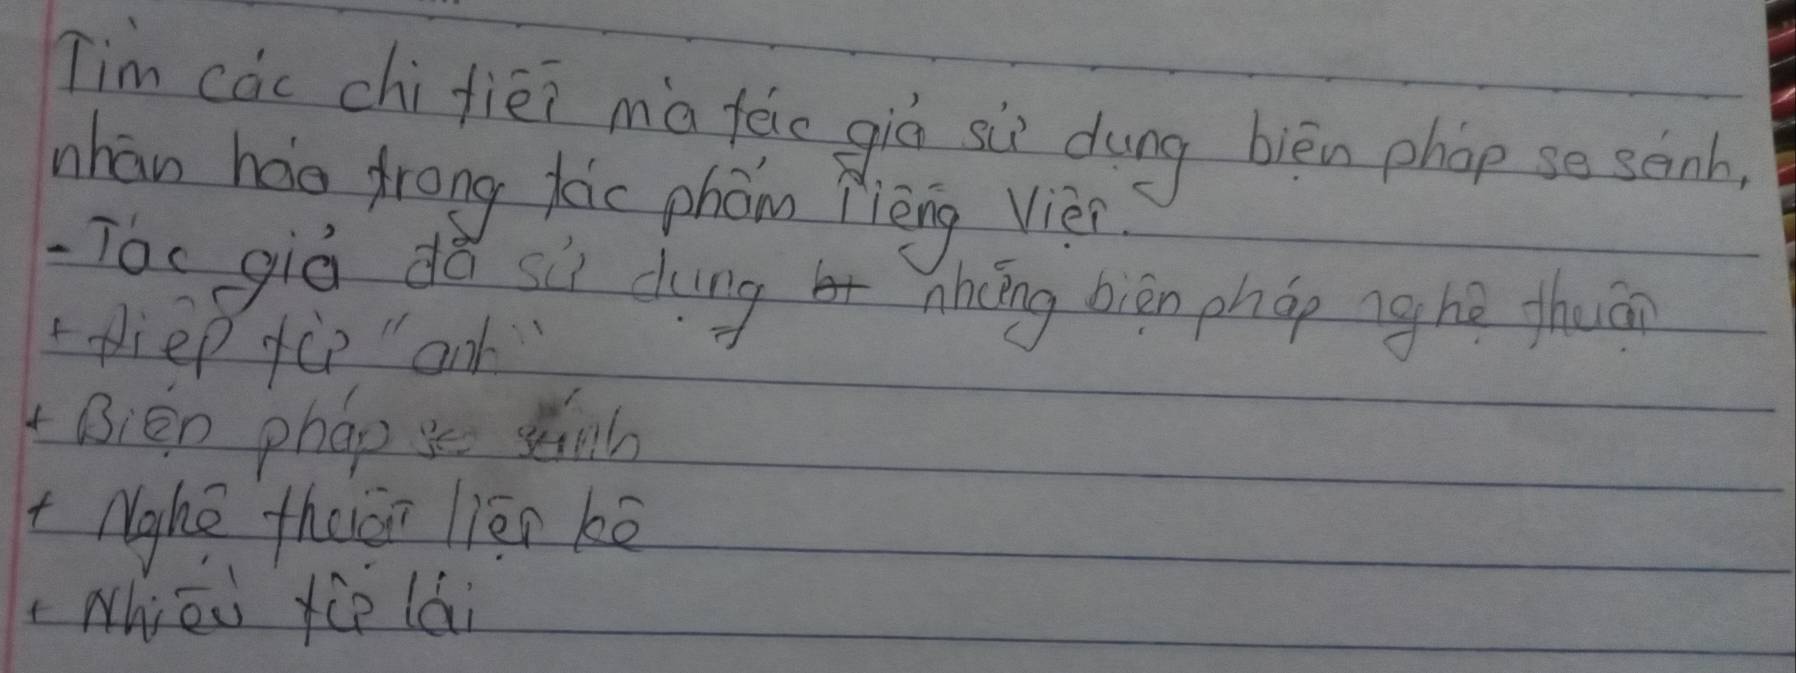 Tìm các chi tiết mà tác giả sử dụng biện pháp so sánh,
nhân hóa trong tác phẩm Tiếng Việt.
- Tác giả đã sử dụng những biện pháp nghệ thuật
+ Điệp từ "anh"
+ Biện pháp so sánh
+ Nghệ thuật liệt kê
+ Nhiều từ lái